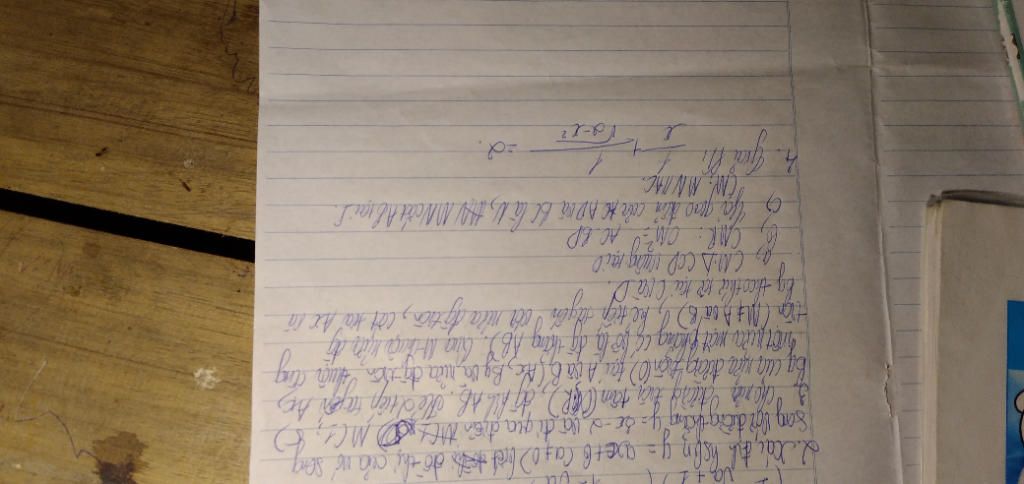 2. Xác
y = ax + b (a ≠ 0) đồ thị của nó song
song với đường thẳng y = 5x - 2 và đi qua điểm M(1;
3. Cho nửa đường tròn tâm (O;R), đg kính AB. Kẻ 2 tiếp tuyến Ax,
By của nửa đường tròn (O) tại A và B (Ax, By và nửa đg tròn thuộc cùng
một nửa mặt phẳng có bờ là đg thẳng AB). Qua M thuộc nửa đg
tròn (M ≠ A và B), kẻ tiếp tuyến với nửa đg tròn, cắt tia Ax và
By theo thứ tự tại C và D.
a, CM Δ COD vuông tại O
b, CMR: OM² = AC.BD
c, Gọi giao điểm của AD và BC là N, MN cắt AB tại I.
CM: MN//AC.
4. Giải Pt: 1/x + 1/√(2-x²) = 2.